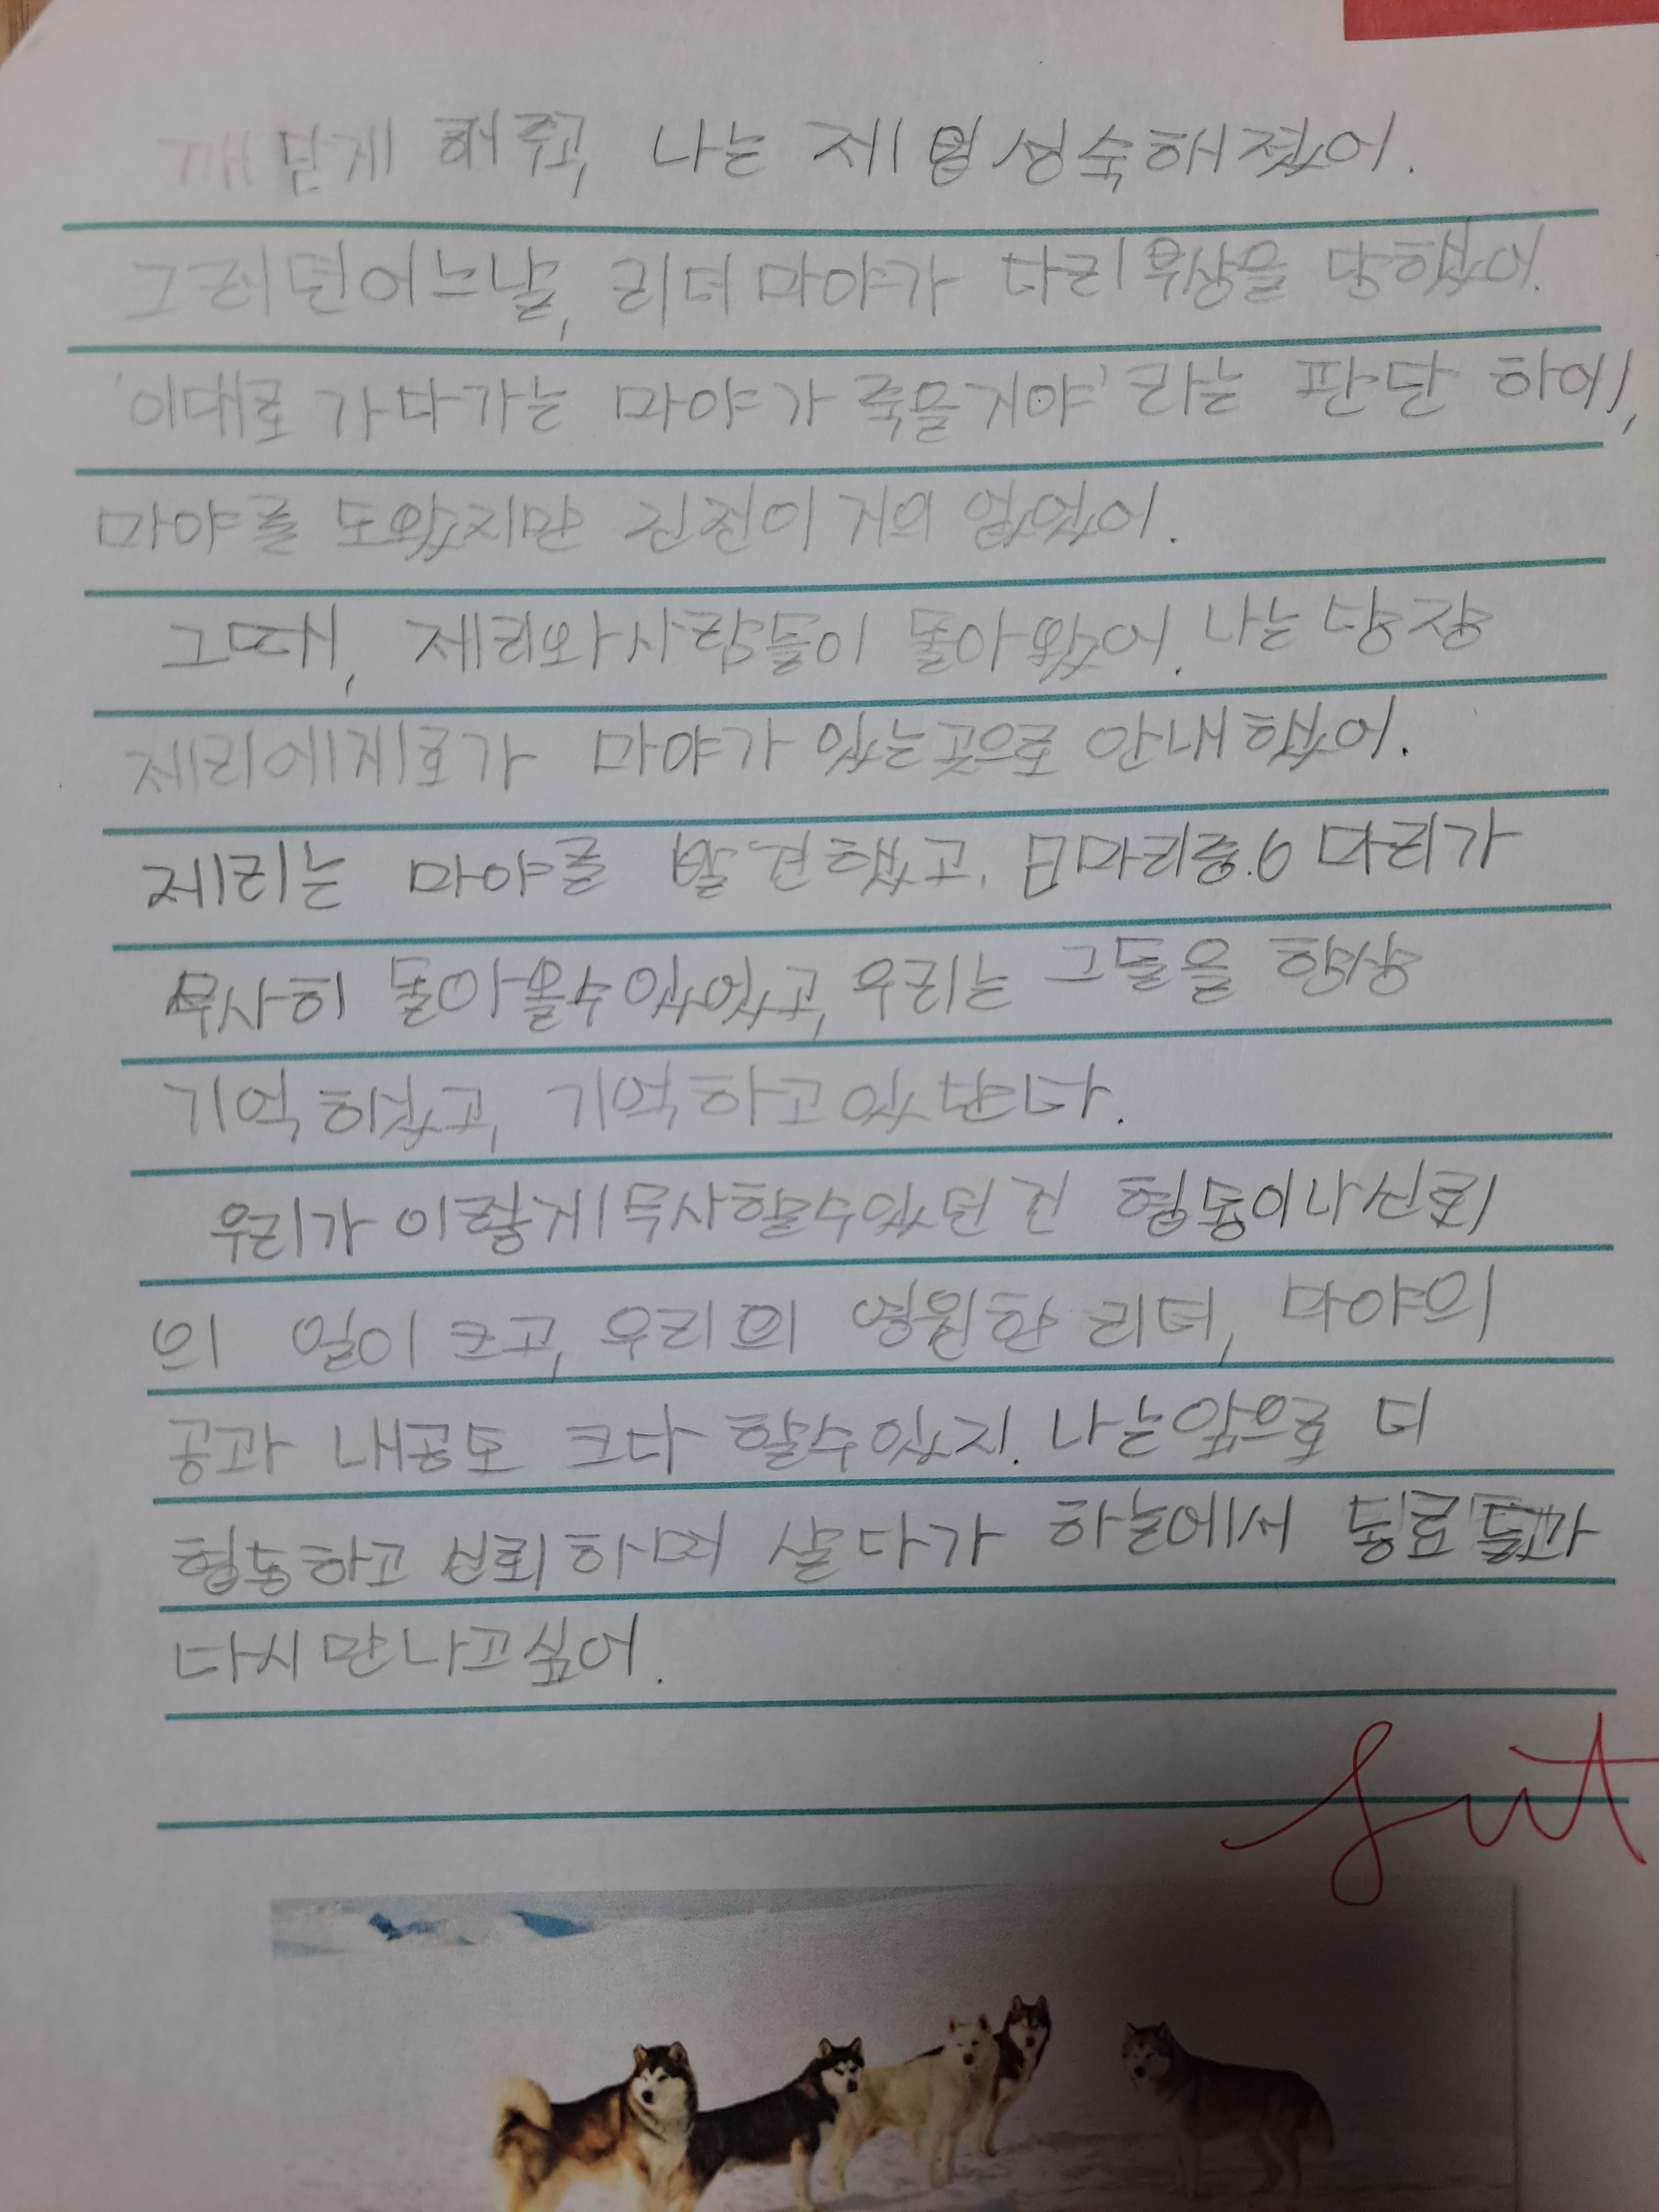 깨닫게 해주고, 나는 제법 성숙해졌어.
그러던 어느날, 리더 마야가 다리 부상을 당했어.
'이대로 가다가는 마야가 죽을거야' 라는 판단 하에,
마야를 도왔지만 진전이 거의 없었어.
그때, 제리와 사람들이 돌아왔어. 나는 당장
제리에게로가 마야가 있는곳으로 안내했어.
제리는 마야를 발견했고, 8마리중 6마리가
무사히 돌아올수있었고, 우리는 그들을 항상
기억하였고, 기억하고있단다.
우리가 이렇게 무사할수있던 건 협동이나 신뢰
의 일이 크고, 우리의 영원한 리더, 마야의
공과 내공도 크다 할수있지. 나는 앞으로 더
협동하고 신뢰하며 살다가 하늘에서 동료들과
다시 만나고싶어.